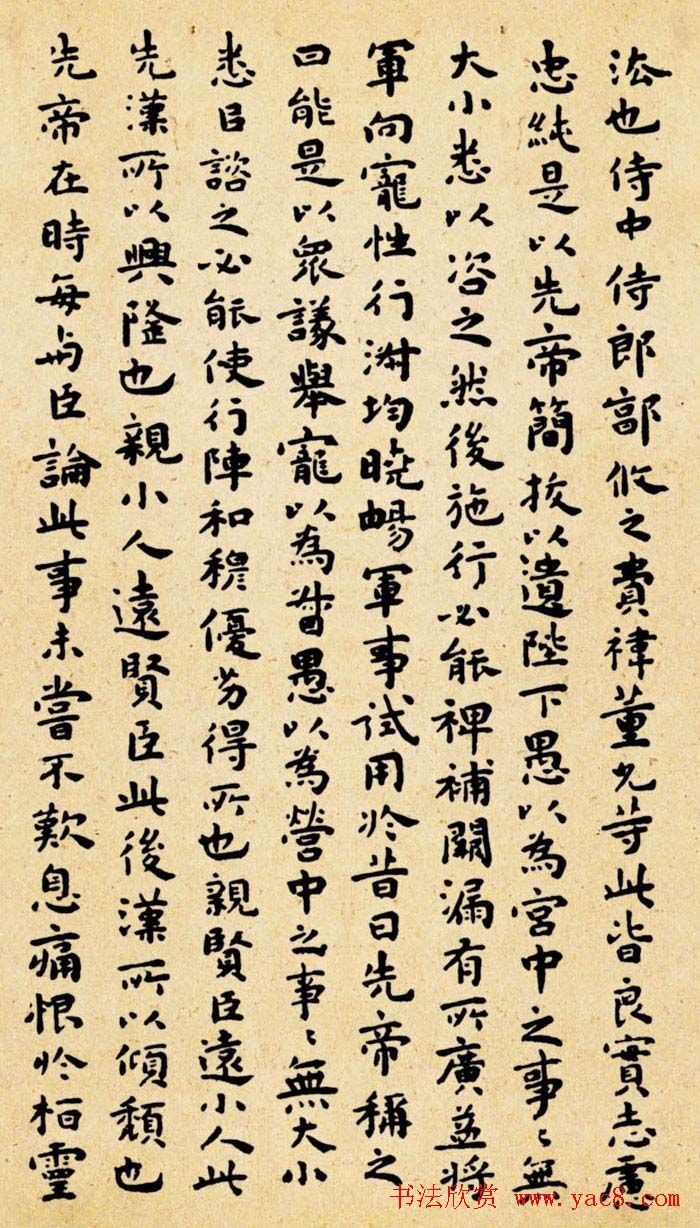 法也侍中侍郎郭攸之費禕董允等此皆良實志慮
忠純是以先帝簡拔以遺陛下愚以為宮中之事〻無
大小悉以咨之然後施行必能裨補闕漏有所廣益將
軍向寵性行淑均曉暢軍事試用於昔日先帝稱之
曰能是以眾議舉寵以為督愚以為營中之事〻無大小
悉㠯諮之必能使行陣和穆優劣得所也親賢臣遠小人此
先漢所以興隆也親小人遠賢臣此後漢所以傾頹也
先帝在時每与臣論此事未嘗不歎息痛恨於桓靈
书法欣赏 www.yac8.com